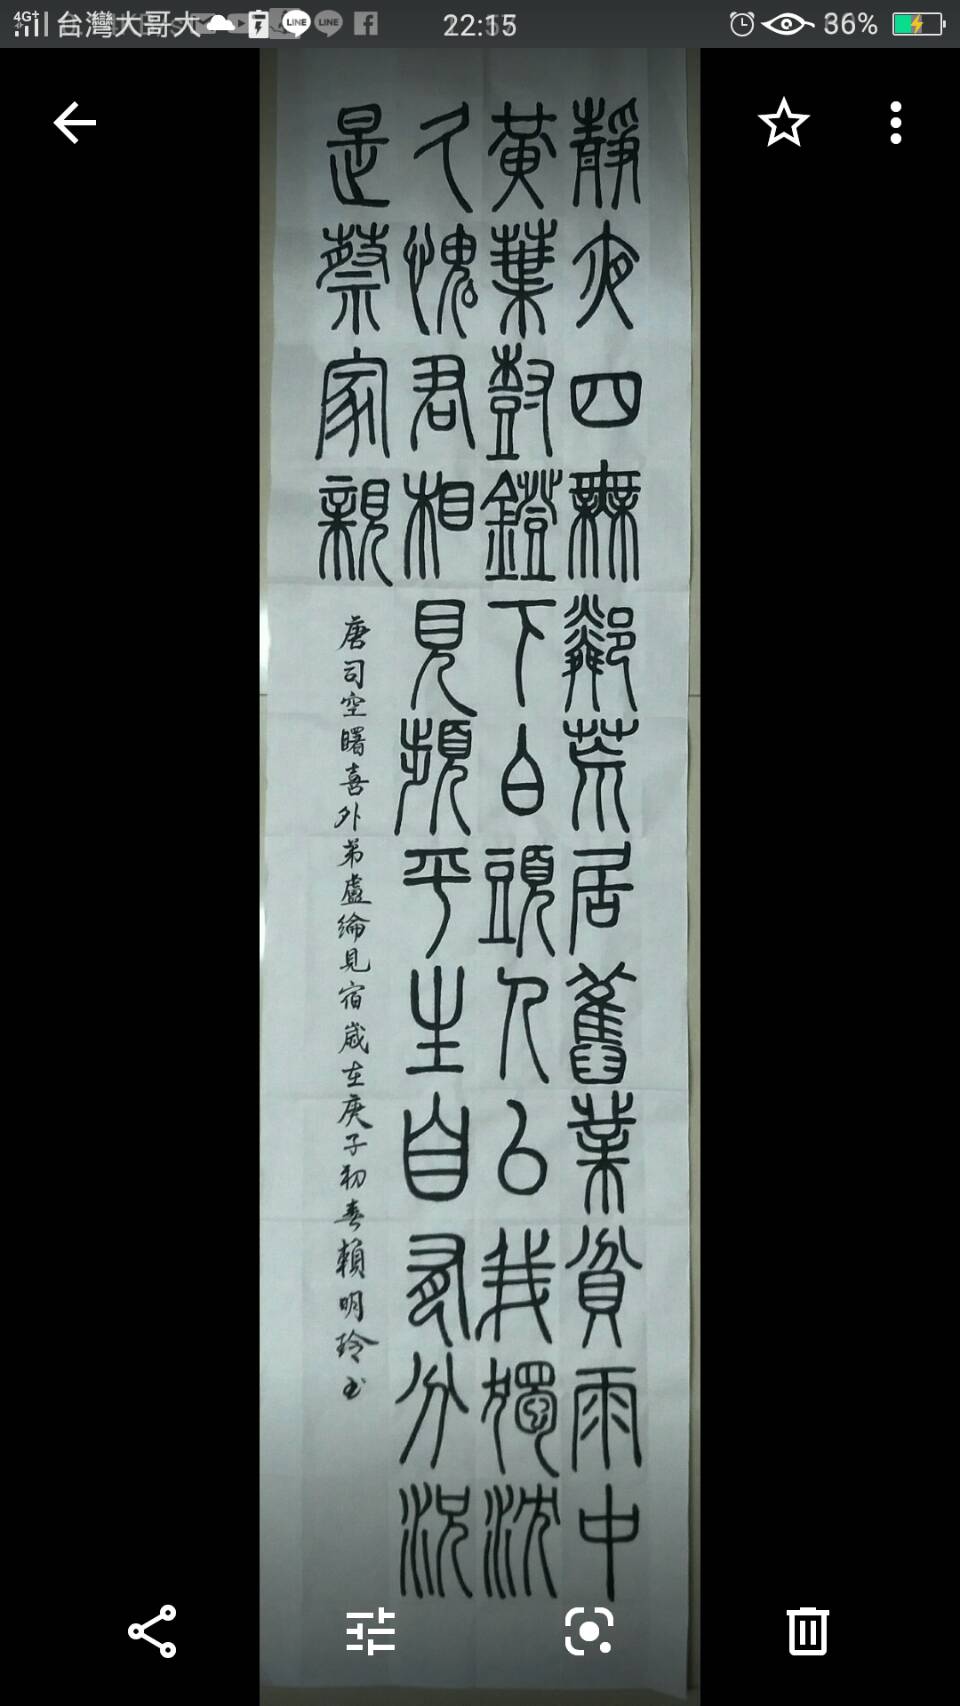 4G+ 台灣大哥大 LINE 22:15 36%
靜夜四無鄰荒居舊業貧雨中
黃葉對鐙下白頭人以我獨沈
久愧君相見頻平生自有分況
是蔡家親
唐司空曙喜外弟盧綸見宿歲在庚子初春賴明玲書